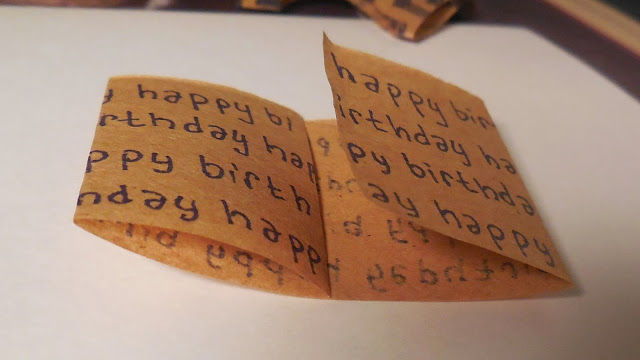 y happy bi
rthday hap
ppy birth
hday happ
happy bir
irthday ha
py birthda
ay happy